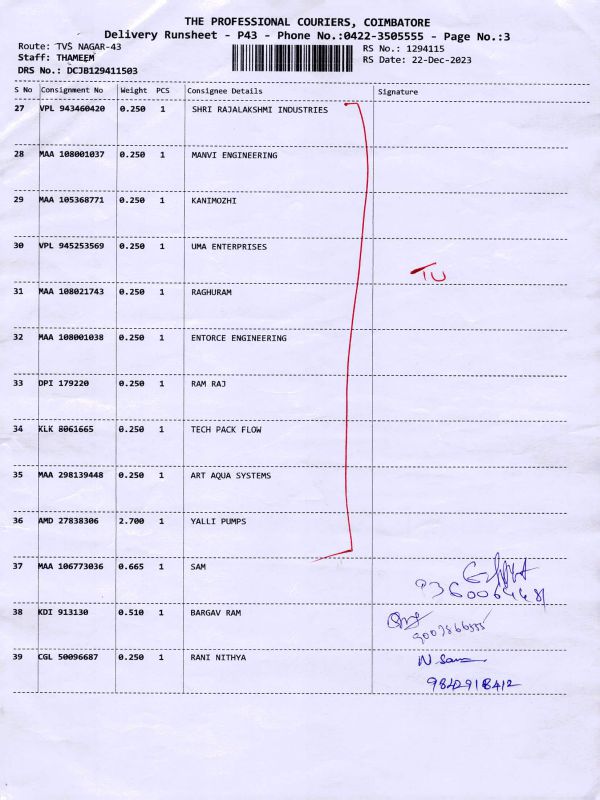 THE PROFESSIONAL COURIERS, COIMBATORE
Delivery Runsheet - P43 - Phone No.:0422-3505555 - Page No.:3
Route: TVS NAGAR-43
RS No.: 1294115
Staff: THAMEEM
RS Date: 22-Dec-2023
DRS No.: DCJB129411503
S No Consignment No Weight PCS Consignee Details Signature
27 VPL 943460420 0.250 1 SHRI RAJALAKSHMI INDUSTRIES
28 MAA 108001037 0.250 1 MANVI ENGINEERING
29 MAA 105368771 0.250 1 KANIMOZHI
30 VPL 945253569 0.250 1 UMA ENTERPRISES
TU
31 MAA 108021743 0.250 1 RAGHURAM
32 MAA 108001038 0.250 1 ENTORCE ENGINEERING
33 DPI 179220 0.250 1 RAM RAJ
34 KLK 8061665 0.250 1 TECH PACK FLOW
35 MAA 298139448 0.250 1 ART AQUA SYSTEMS
36 AMD 27838306 2.700 1 YALLI PUMPS
37 MAA 106773036 0.665 1 SAM
38 KDI 913130 0.510 1 BARGAV RAM
39 CGL 50096687 0.250 1 RANI NITHYA
9842918412